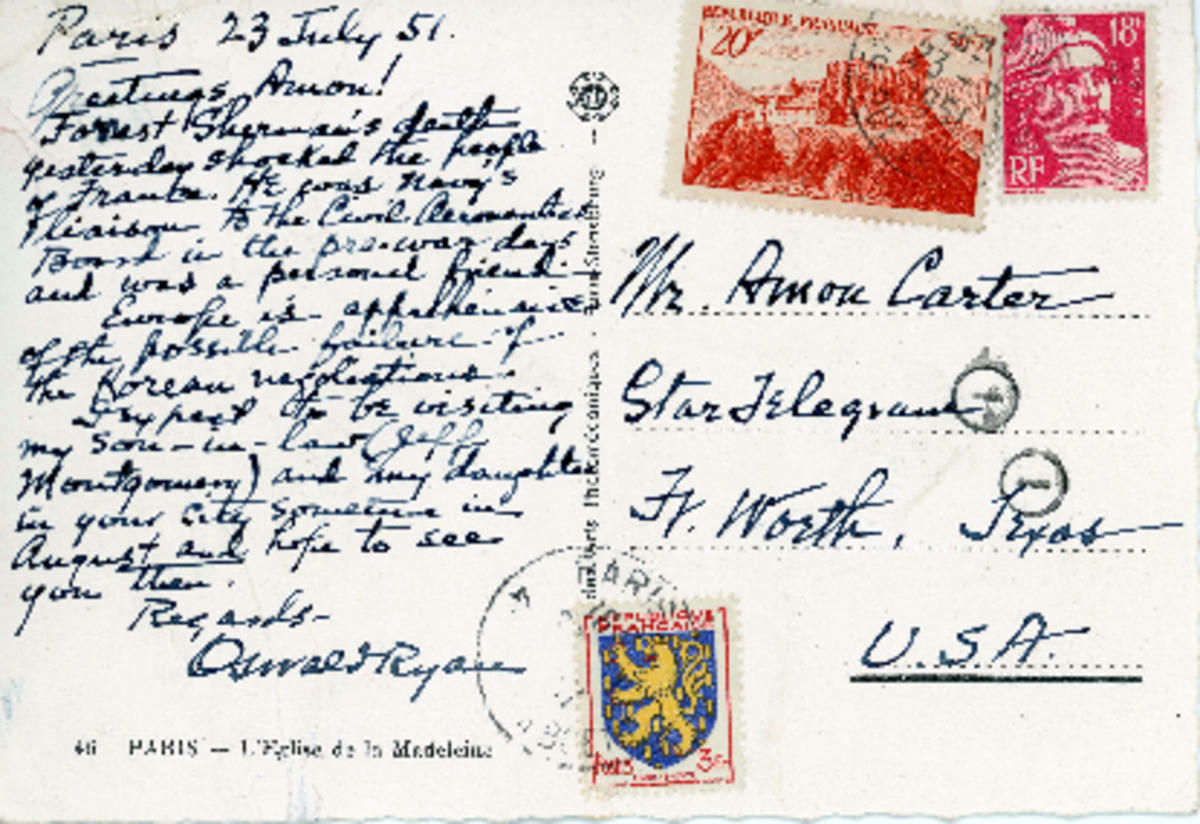 Paris 23 July 51.
Greetings, Amon!
Forrest Sherman's death
yesterday shocked the people
of France. He was Navy's
liaison to the Civil Aeronautics
Board in the pre-war days
and was a personal friend.
Europe is apprehensive
of the possible failure of
the Korean negotiations.
I expect to be visiting
my son-in-law (Jeff
Montgomery) and my daughter
in your city sometime in
August and hope to see
you then.
Regards-
Oswald Ryan
46 PARIS - L'Eglise de la Madeleine
REPUBLIQUE FRANÇAISE
20F
18F
RF
Mr. Amon Carter
Star Telegram
Ft. Worth, Texas
U.S.A.
PARIS
REPUBLIQUE
FRANÇAISE
POSTES 3F